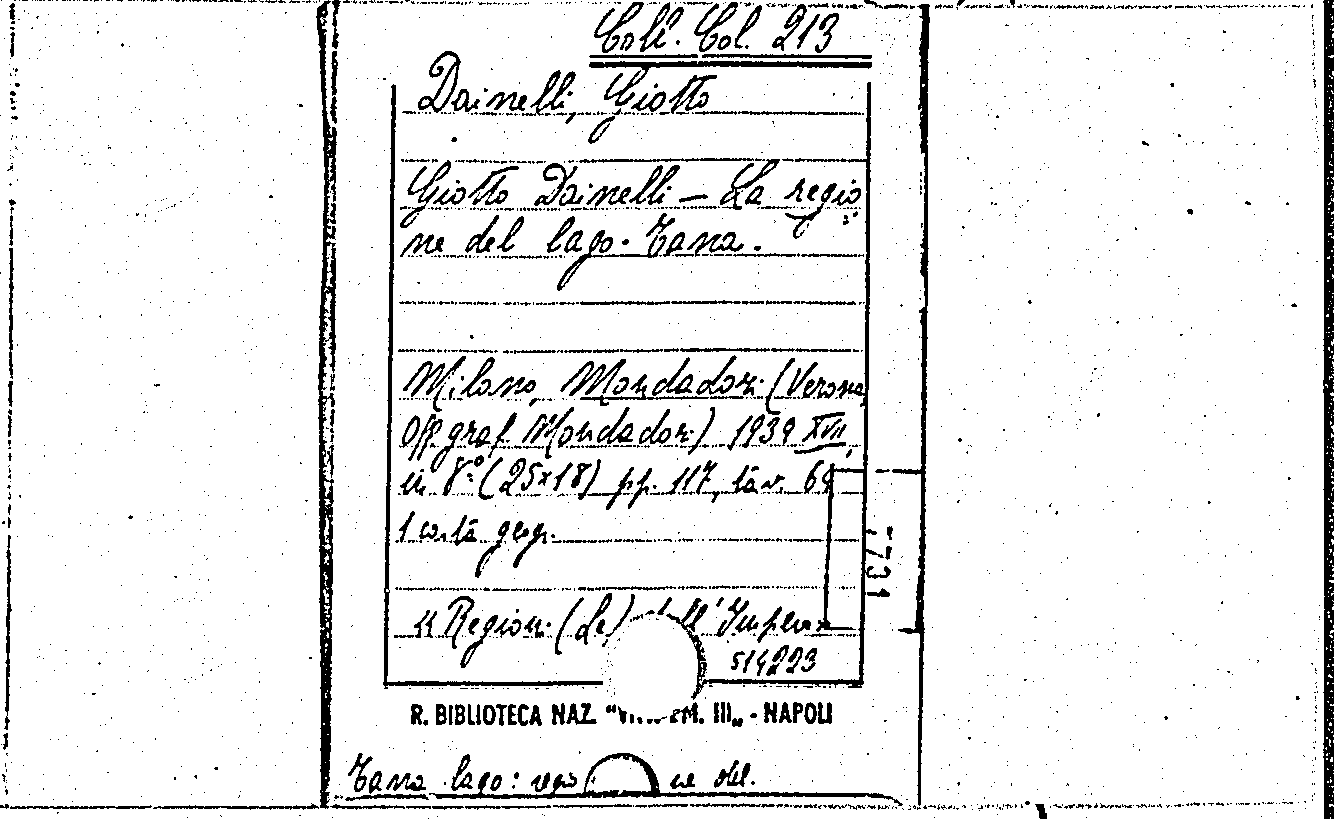 Coll. Col. 213
Dainelli, Giotto
Giotto Dainelli — La regio
ne del lago Tana.
Milano, Mondadori (Verona,
Off. graf. Mondadori) 1939 XVII,
in 8.º (25x18) pp. 117, tav. 64
1 carta geogr.
« Regioni (Le) dell'Impero »
514223
R. BIBLIOTECA NAZ. " EM. III„ - NAPOLI
7731
Tana lago: regio ne del.